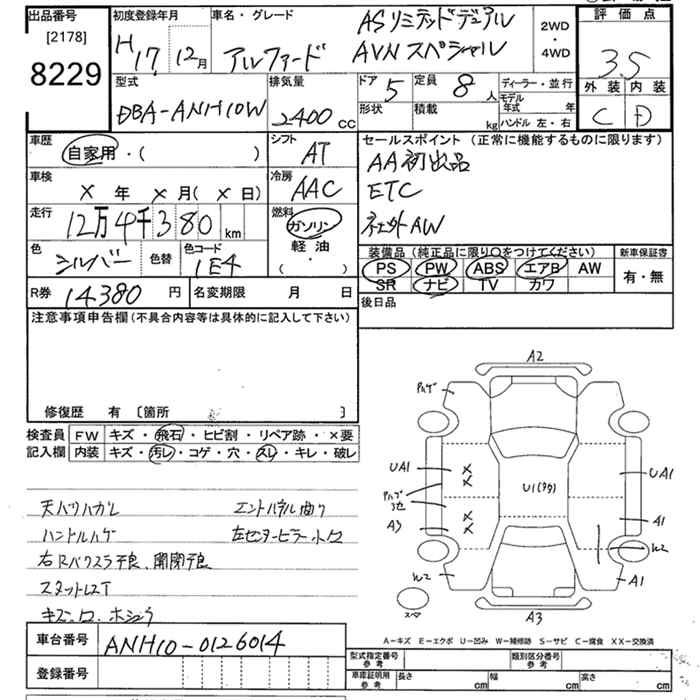 出品番号
[2178]
8229
初度登録年月
H17 12月
車名・グレード
アルファード
ASリミテッドデュアル
AVNスペシャル
2WD
・
4WD
評価点
3.5
外装 内装
C D
型式
DBA-ANH10W
排気量
2400 CC
ドア 5
定員 8 人
ディーラー・並行
形状
積載 kg
モデル年式 年
ハンドル 左・右
車歴
自家用・( )
シフト
AT
セールスポイント(正常に機能するものに限ります)
AA初出品
ETC
社外AW
車検
× 年 × 月( × 日)
冷房
AAC
走行
12万4千380 km
燃料
ガソリン
軽油
( ・ )
色
シルバー
色替
色コード
1E4
装備品(純正品に限り○をつけてください)
PS PW ABS エアB AW
SR ナビ TV カワ
新車保証書
有・無
R券 14380 円
名変期限 月 日
後日品
注意事項申告欄(不具合内容等は具体的に記入して下さい)
修復歴 有 〔箇所 〕
検査員 FW キズ・飛石・ヒビ割・リペア跡・×要
記入欄 内装 キズ・汚レ・コゲ・穴・スレ・キレ・破レ
天バリハガレ
エントパネル曲り
ハンドルハゲ
左センターピラー小凹
右Rパワスラ不良、開閉不良
スタットレスT
A2
UA1
A3
W2
U1
UA1
A1
W2
A1
A3
スペア
A-キズ E-エクボ U-凹み W-補修跡 S-サビ C-腐食 XX-交換済
車台番号 ANH10-0126014
登録番号
型式指定番号 参考
類別区分番号 参考
車庫証明用 参考
長さ cm
幅 cm
高さ cm